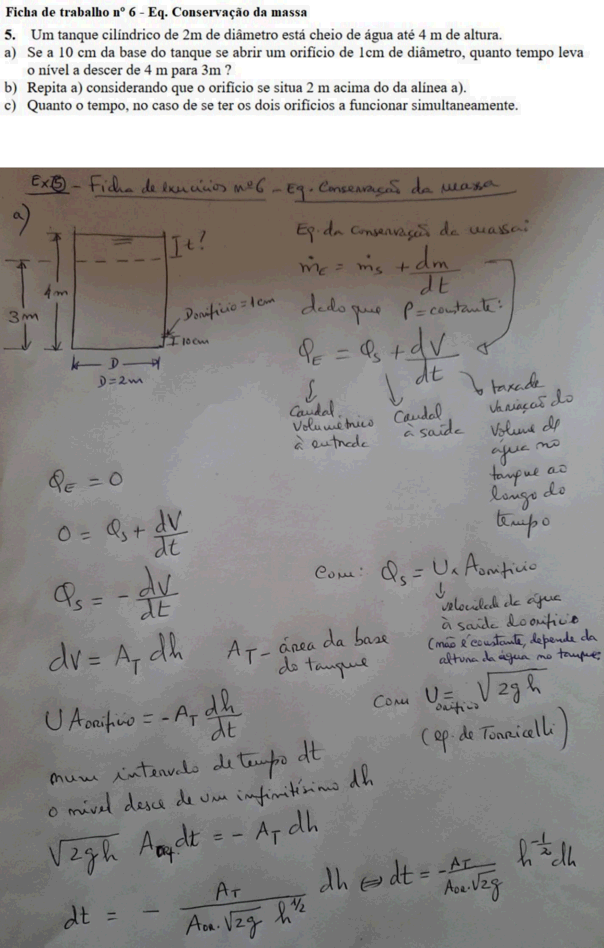 Ficha de trabalho nº 6 - Eq. Conservação da massa
5. Um tanque cilíndrico de 2m de diâmetro está cheio de água até 4 m de altura.
a) Se a 10 cm da base do tanque se abrir um orifício de 1cm de diâmetro, quanto tempo leva
o nível a descer de 4 m para 3m ?
b) Repita a) considerando que o orifício se situa 2 m acima do da alínea a).
c) Quanto o tempo, no caso de se ter os dois orifícios a funcionar simultaneamente.
Ex 5 - Ficha de exercícios nº 6 - Eq. Conservação da massa
a)
t?
4m
3m
Dorifício = 1cm
10cm
D
D = 2m
Eq. da Conservação da massa:
ṁE = ṁs + dm/dt
dado que ρ = constante:
QE = Qs + dV/dt
Caudal
volumétrico
à entrada
Caudal
à saída
taxa de
variação do
volume de
água no
tanque ao
longo do
tempo
QE = 0
0 = Qs + dV/dt
Qs = - dV/dt
Com: Qs = U x Aorifício
velocidade da água
à saída do orifício
(não é constante, depende da
altura da água no tanque)
dv = AT dh
AT - área da base
do tanque
U Aorifício = - AT dh/dt
Com Uorifício = √2gh
(eq. de Torricelli)
num intervalo de tempo dt
o nível desce de um infinitésimo dh
√2gh Aorif. dt = - AT dh
dt = - AT/(AOR.√2g h^1/2) dh ⇔ dt = - AT/(AOR.√2g) h^-1/2 dh